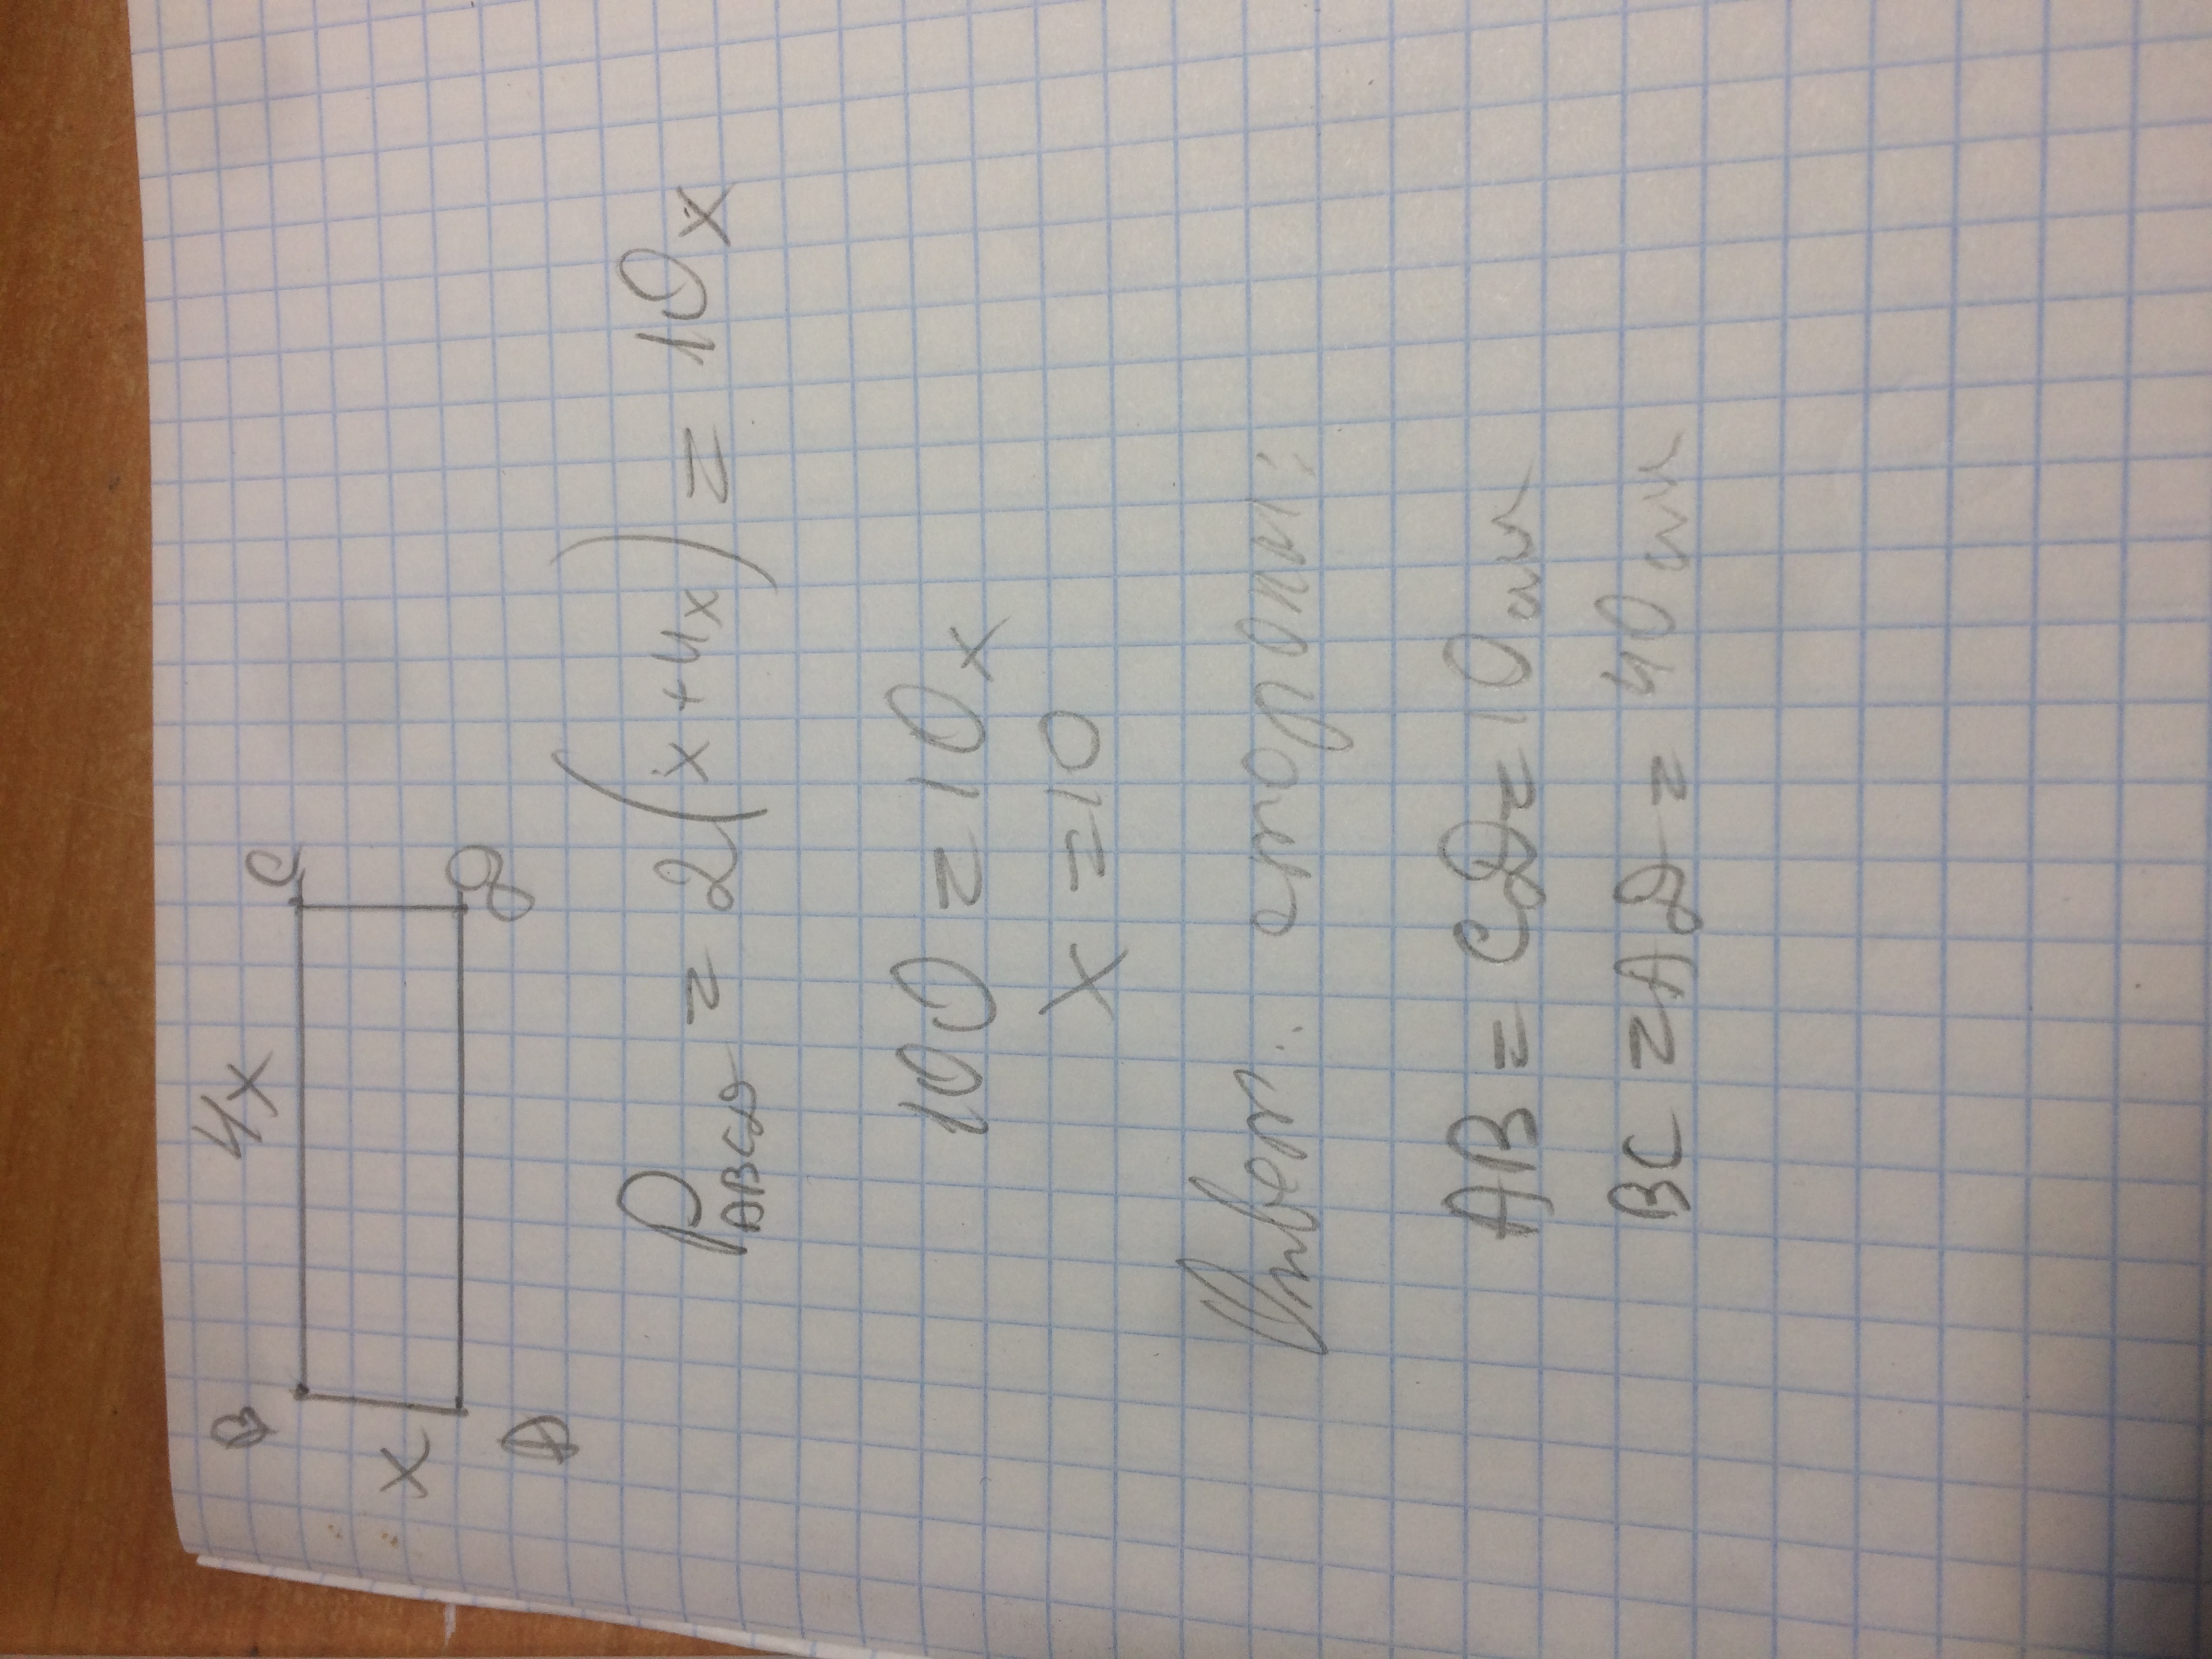 4x
B C
x
A D
P ABCD = 2(x+4x) = 10x
100 = 10x
x = 10
Ответ: стороны:
AB = CD = 10 см
BC = AD = 40 см